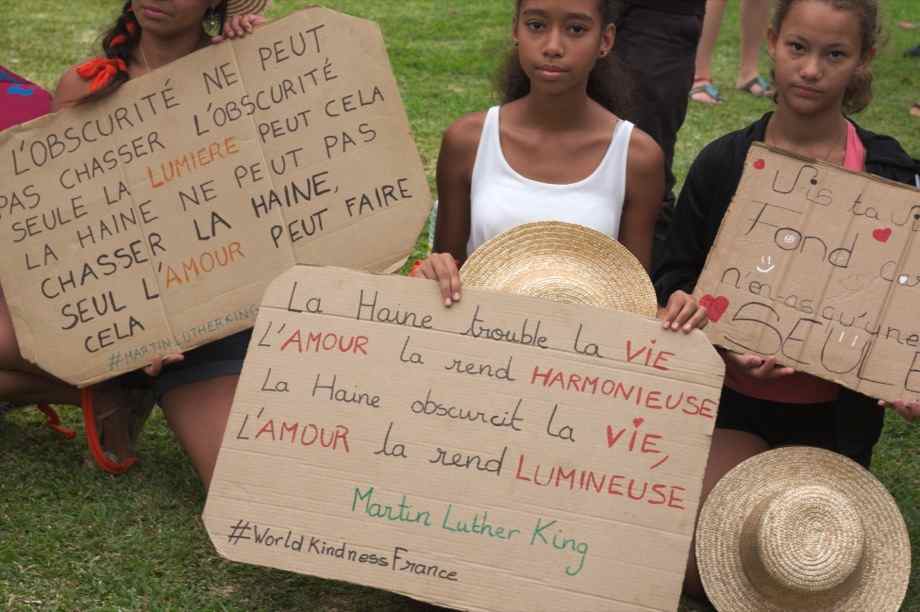 L'OBSCURITÉ NE PEUT
PAS CHASSER L'OBSCURITÉ
SEULE LA LUMIERE PEUT CELA
LA HAINE NE PEUT PAS
CHASSER LA HAINE,
SEUL L'AMOUR PEUT FAIRE
CELA
#MARTIN LUTHER KING
La Haine trouble la VIE
L'AMOUR la rend HARMONIEUSE
La Haine obscurcit la VIE,
L'AMOUR la rend LUMINEUSE
Martin Luther King
#WorldKindnessFrance
Vis ta
Fond
n'en as qu'une
SEULE